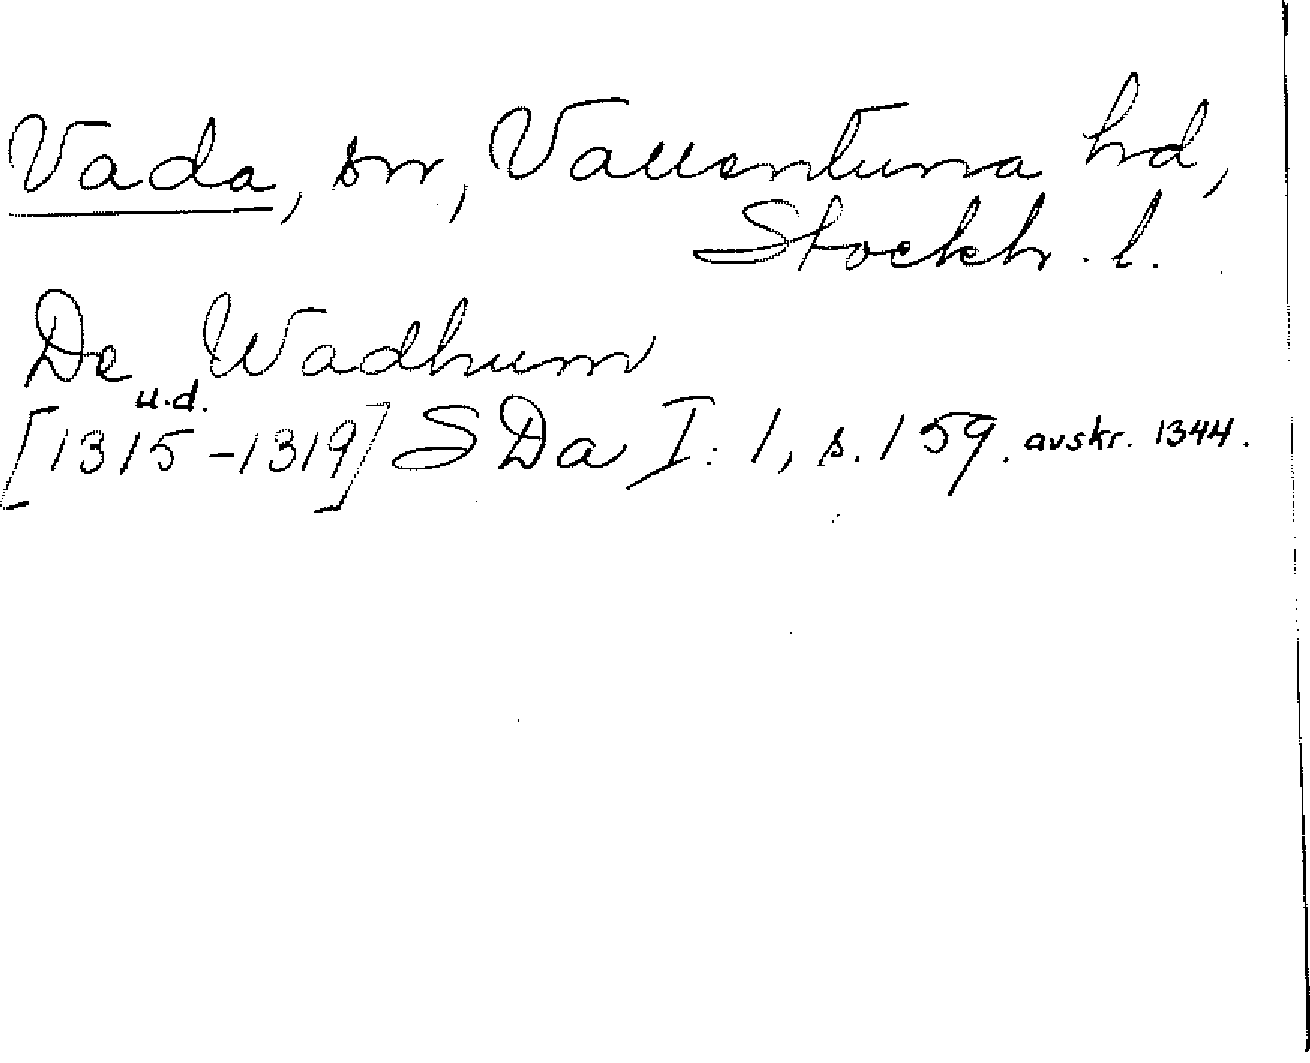 Vada, sn, Vallentuna hd,
Stockh. l.
De Wadhum
u.d.
[1315-1319] SDa I:1, s. 159. avskr. 1344.